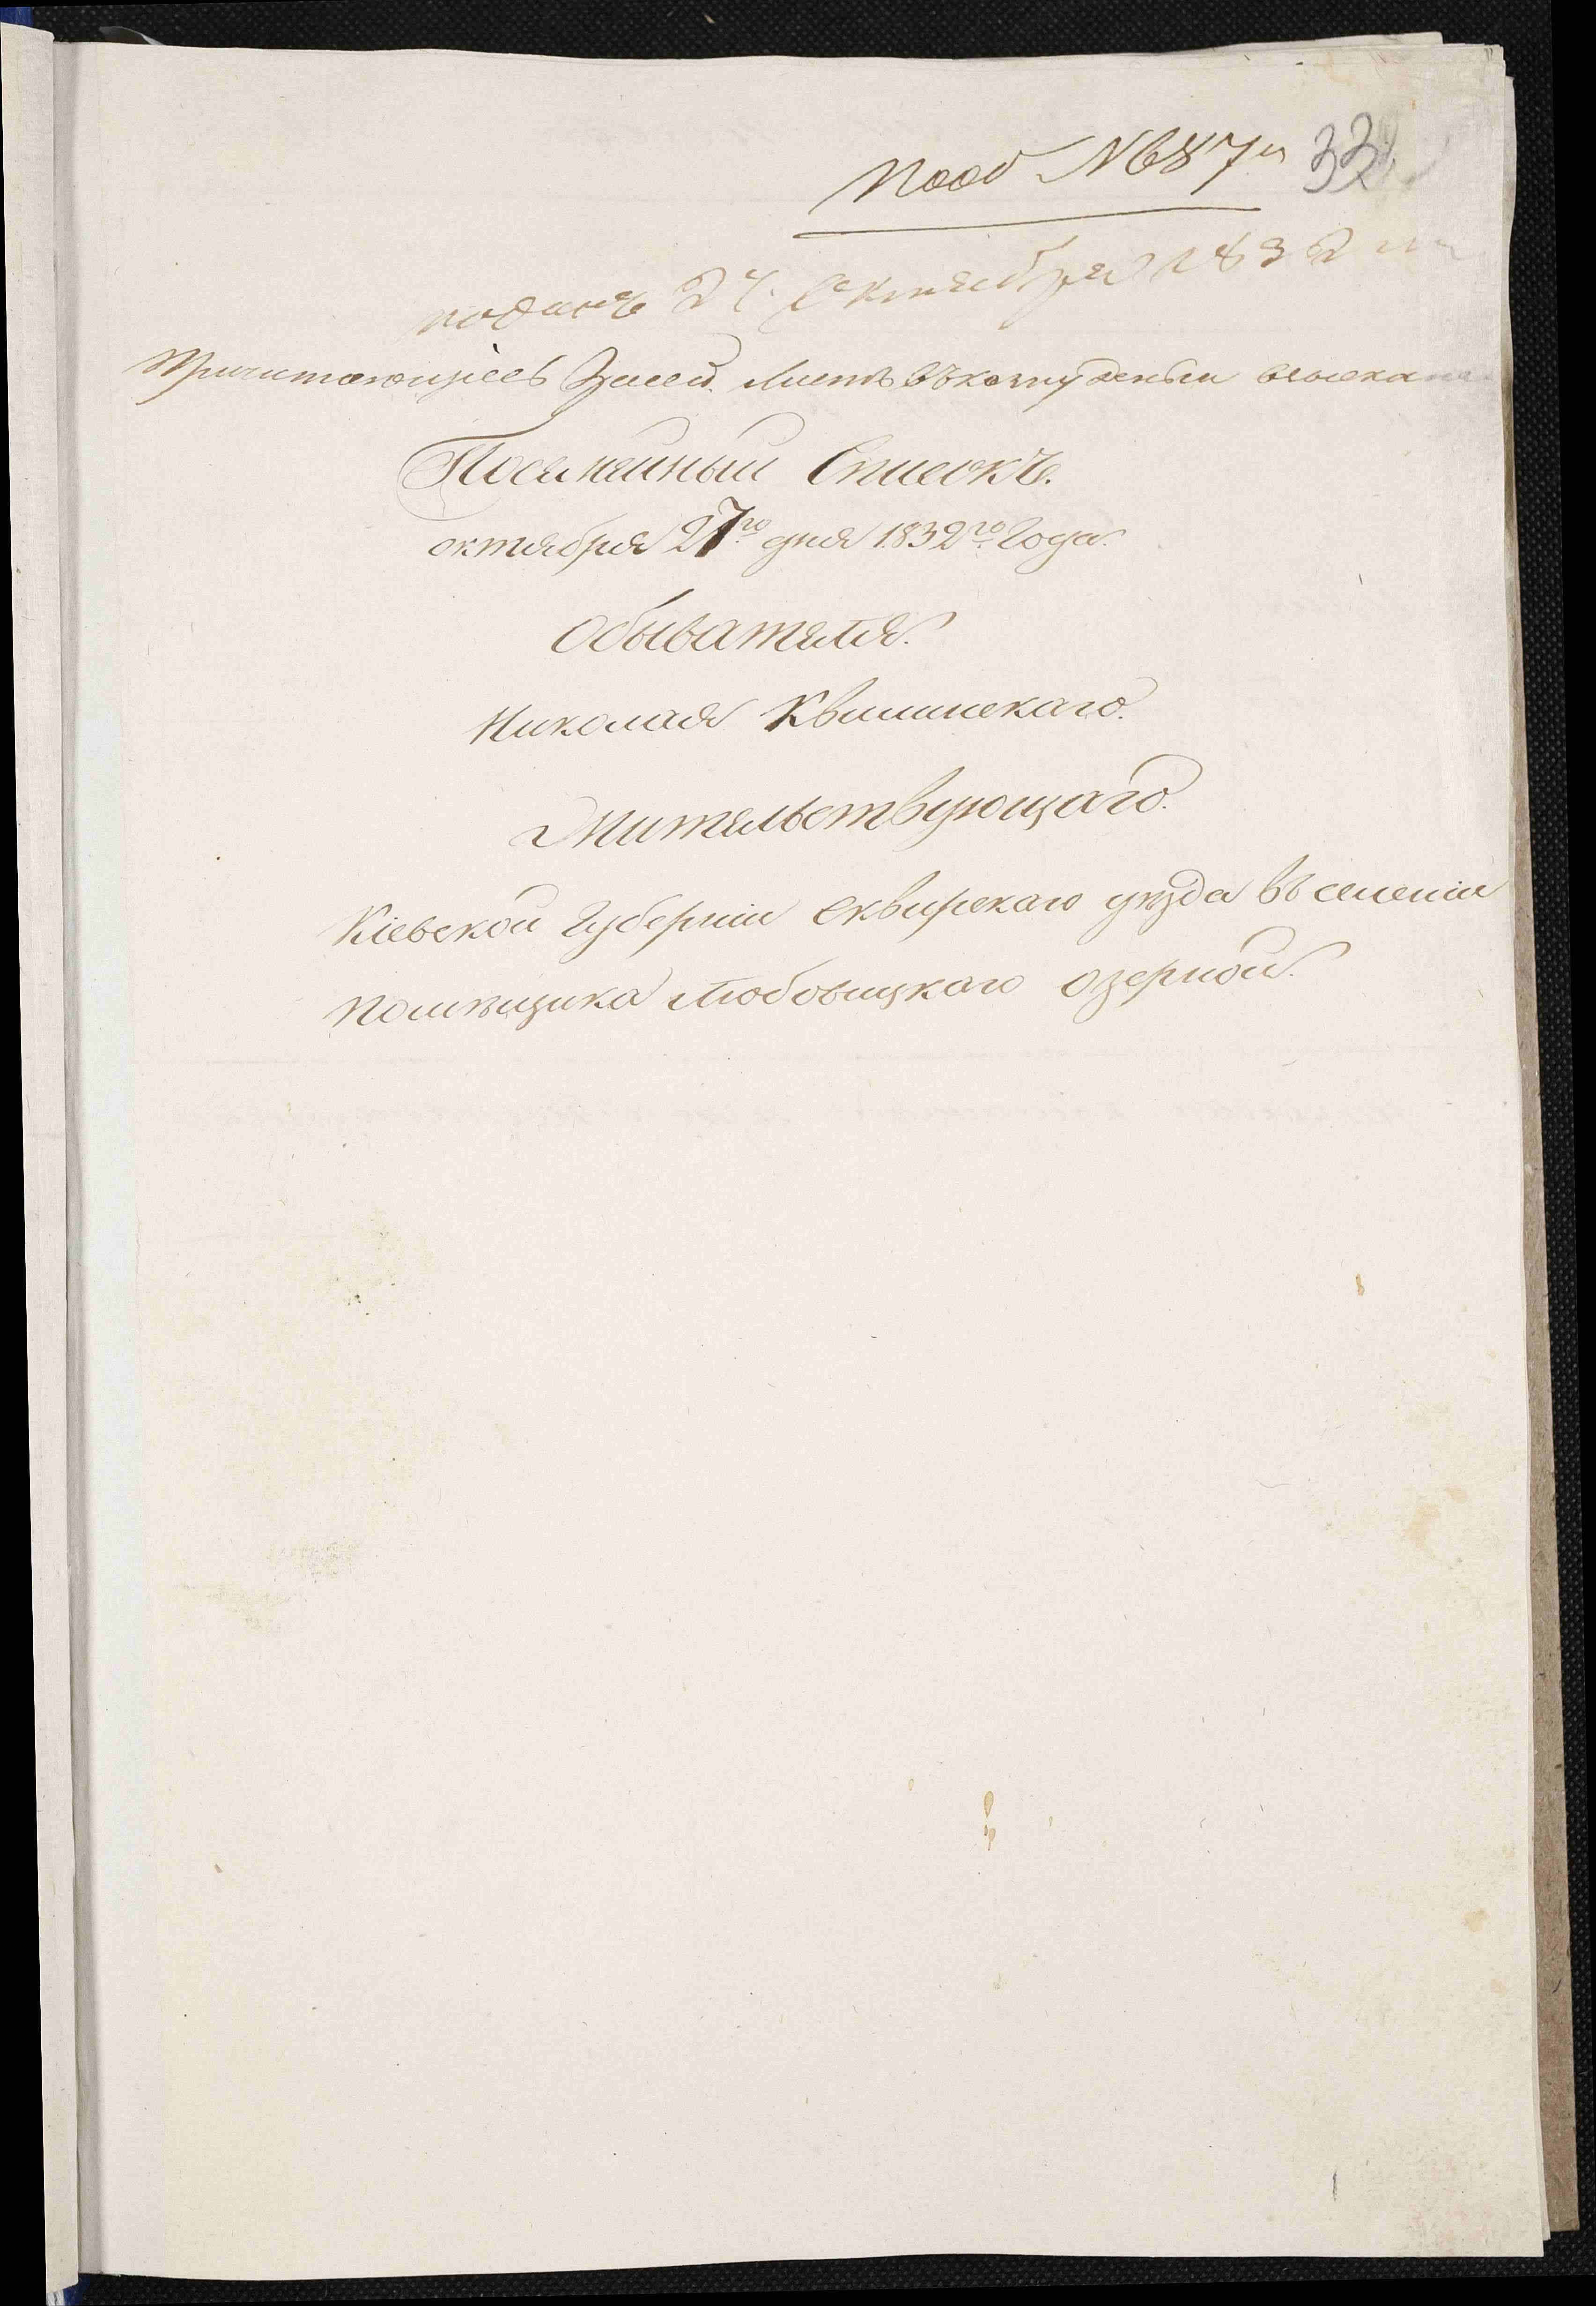 Пооб № 687й 332
поданъ 27. Октября 1832 го
Причитающіесь За сей Листъ въ казну деньги взыска
Посемейный Списокъ.
октября 27го дня 1832го Года.
Обывателя.
Николая Квилинскаго.
Жительствующаго.
Кіевской Губерніи Сквирскаго уѣзда въ селеніи
помѣщика Любовицкаго Озерной.